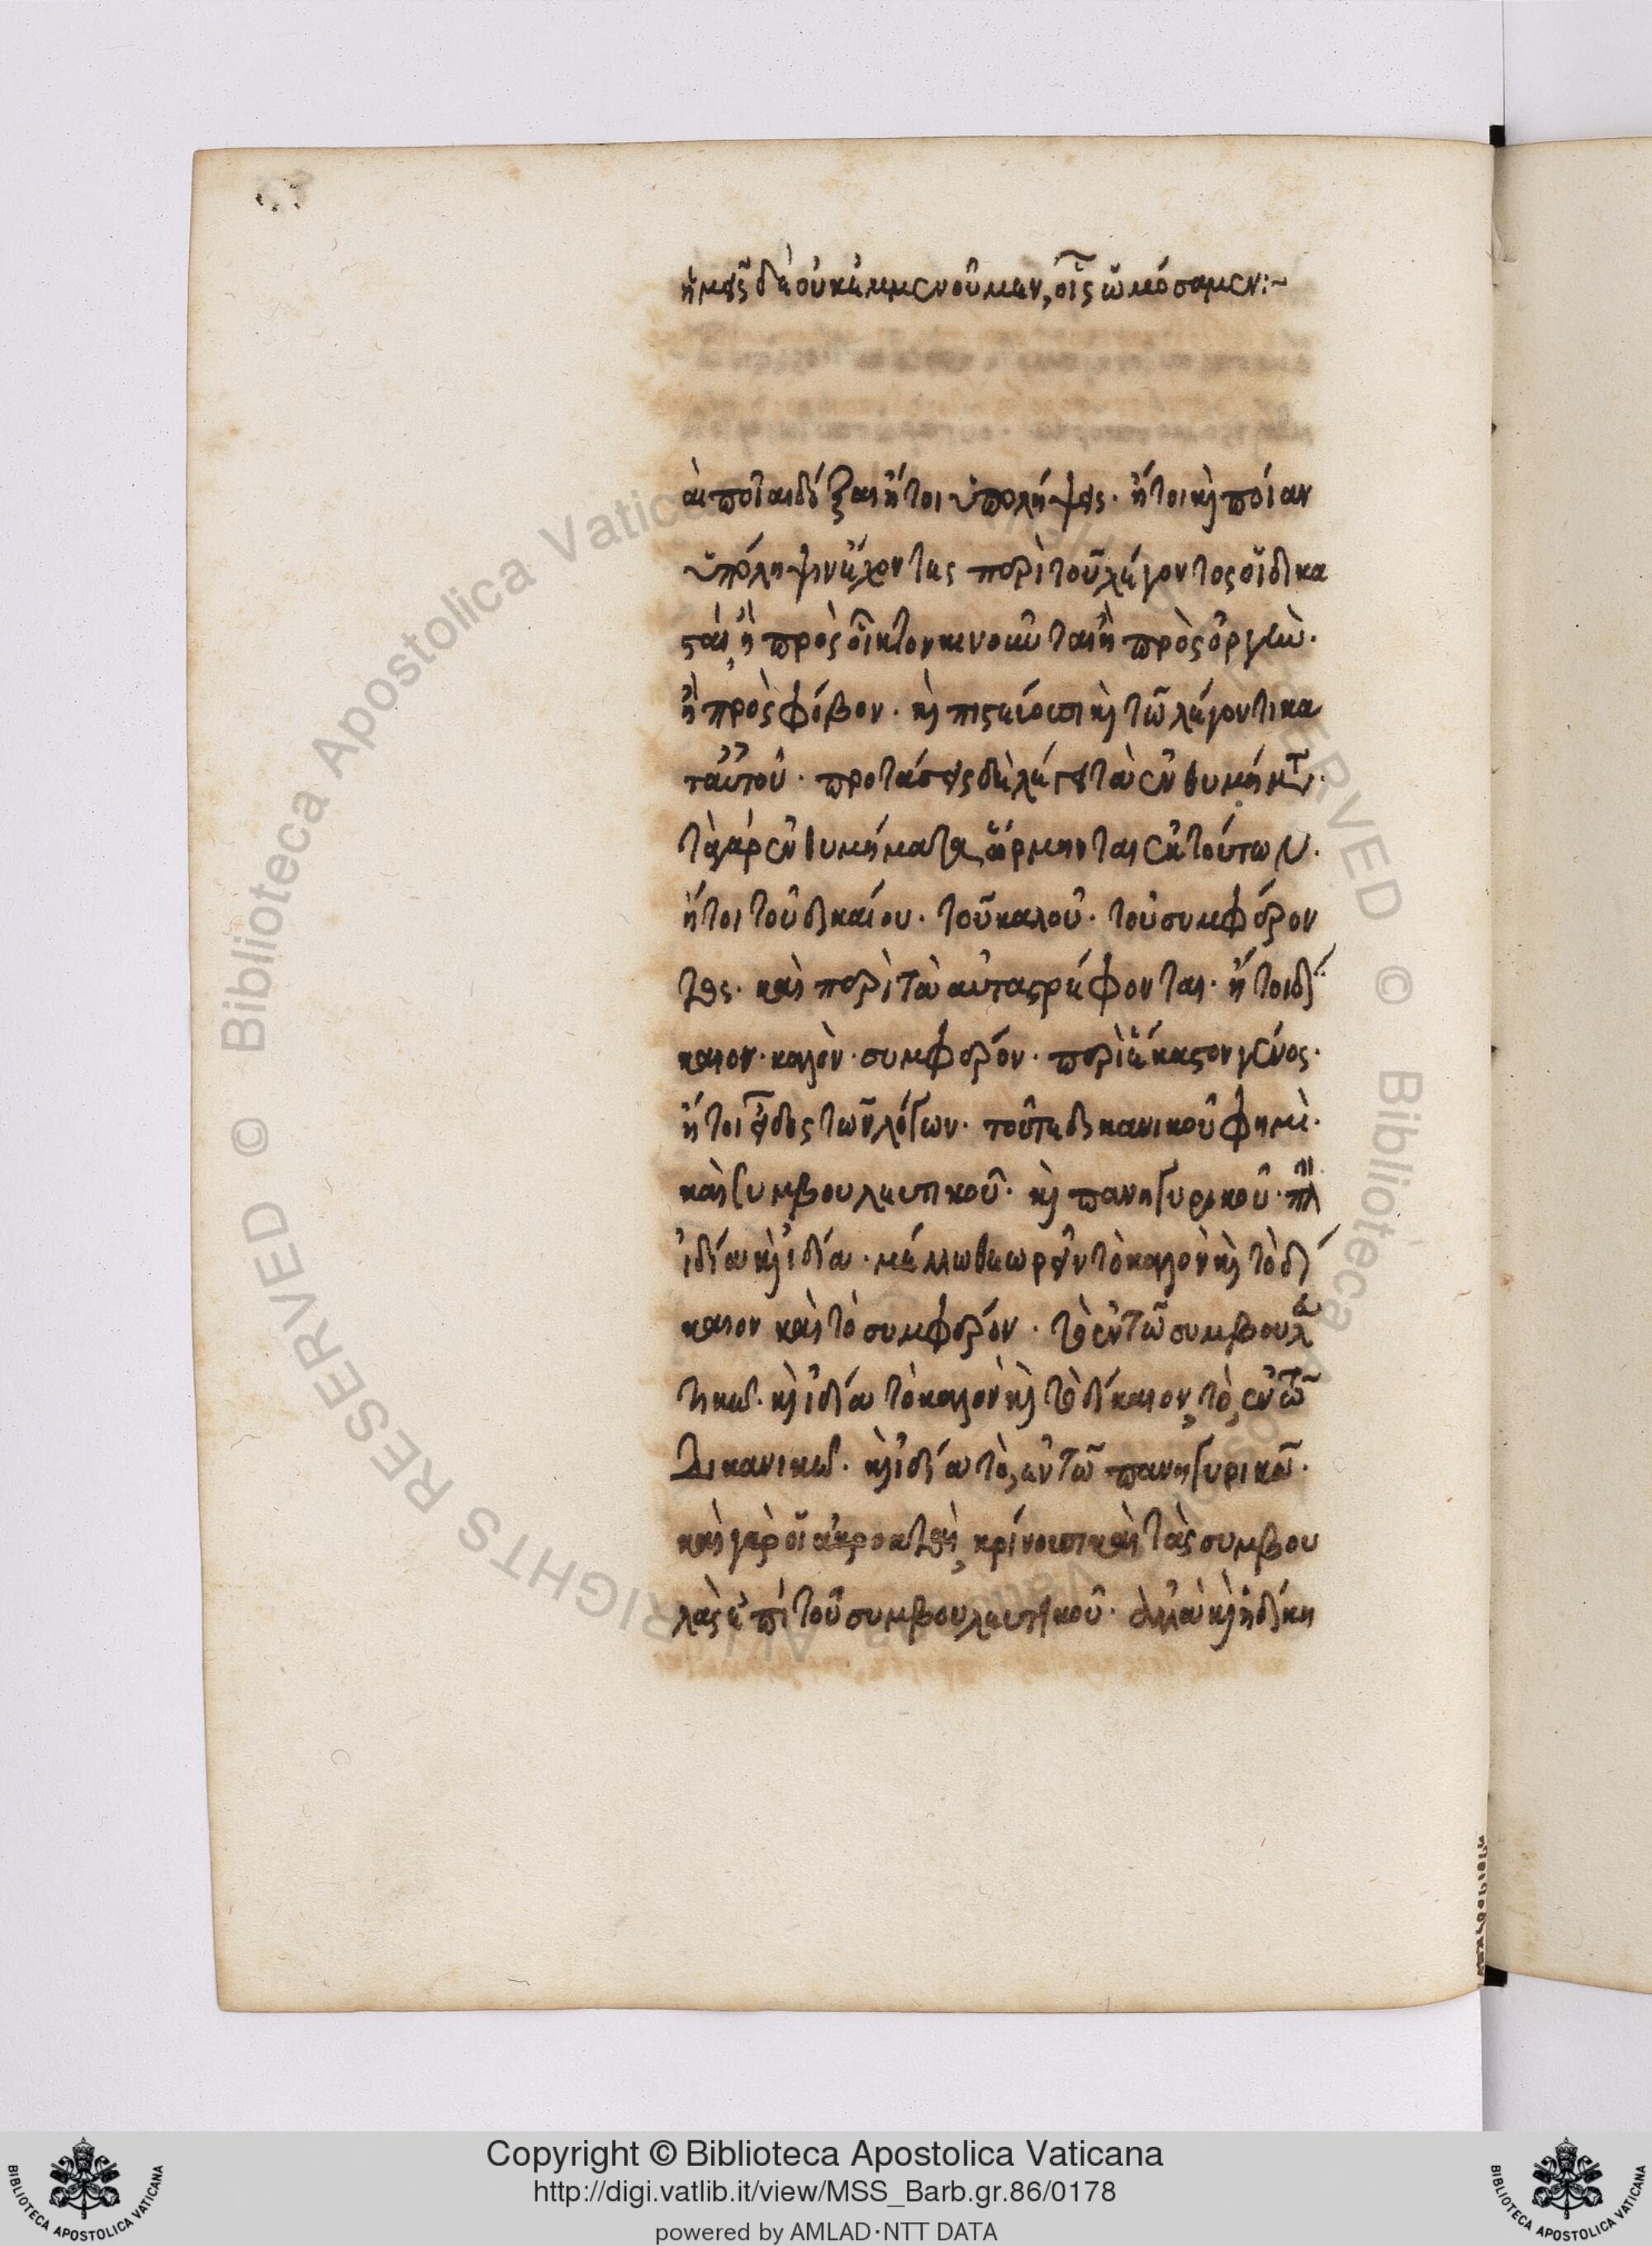 ἡμεῖς δὲ οὐκ ἐμμενοῦμεν, οἷς ὠμόσαμεν:~
αἱ ποῖαι δόξαι ἤτοι ὑπολήψεις· ἤτοι καὶ ποίαν
ὑπόληψιν ἔχοντες περὶ τοῦ λέγοντος οἱ δικα
σταὶ, ἢ πρὸς οἶκτον κινοῦνται ἢ πρὸς ὀργὴν·
ἢ πρὸς φόβον· καὶ πιστεύουσι καὶ τῶ λέγοντι κα
τ' αὐτοῦ· προτάσεις δὲ λέγει τὰ ἐνθυμήματ·
τὰ γὰρ ἐνθυμήματα ὥρμηνται ἐκ τούτων·
ἤτοι τοῦ δικαίου· τοῦ καλοῦ· τοῦ συμφέρον
τος· καὶ περὶ τὰ αὐτὰ στρέφονται· ἤτοι δί
καιον· καλὸν· συμφέρον· περὶ ἕκαστον γένος·
ἤτοι εἶδος τῶν λόγων· τοῦ τε δικανικοῦ φημὶ·
καὶ συμβουλευτικοῦ· καὶ πανηγυρικοῦ· πλ
ἰδία καὶ ἰδία· μέλλω θεωρεῖν τὸ καλὸν καὶ τὸ δί
καιον καὶ τὸ συμφέρον· τὸ ἐν τῶ συμβουλευ
τικῶ· καὶ ἰδία τὸ καλὸν καὶ τὸ δίκαιον, τὸ, ἐν τῶ
δικανικῶ· καὶ ἰδία τὸ, ἐν τῶ πανηγυρικῶ·
καὶ γὰρ οἱ ἀκροαταὶ, κρίνουσι καὶ τὰς συμβου
λὰς ἐπὶ τοῦ συμβουλευτικοῦ· ἀλλὰ καὶ ἡ δίκη
Copyright © Biblioteca Apostolica Vaticana
http://digi.vatlib.it/view/MSS_Barb.gr.86/0178
powered by AMLAD·NTT DATA